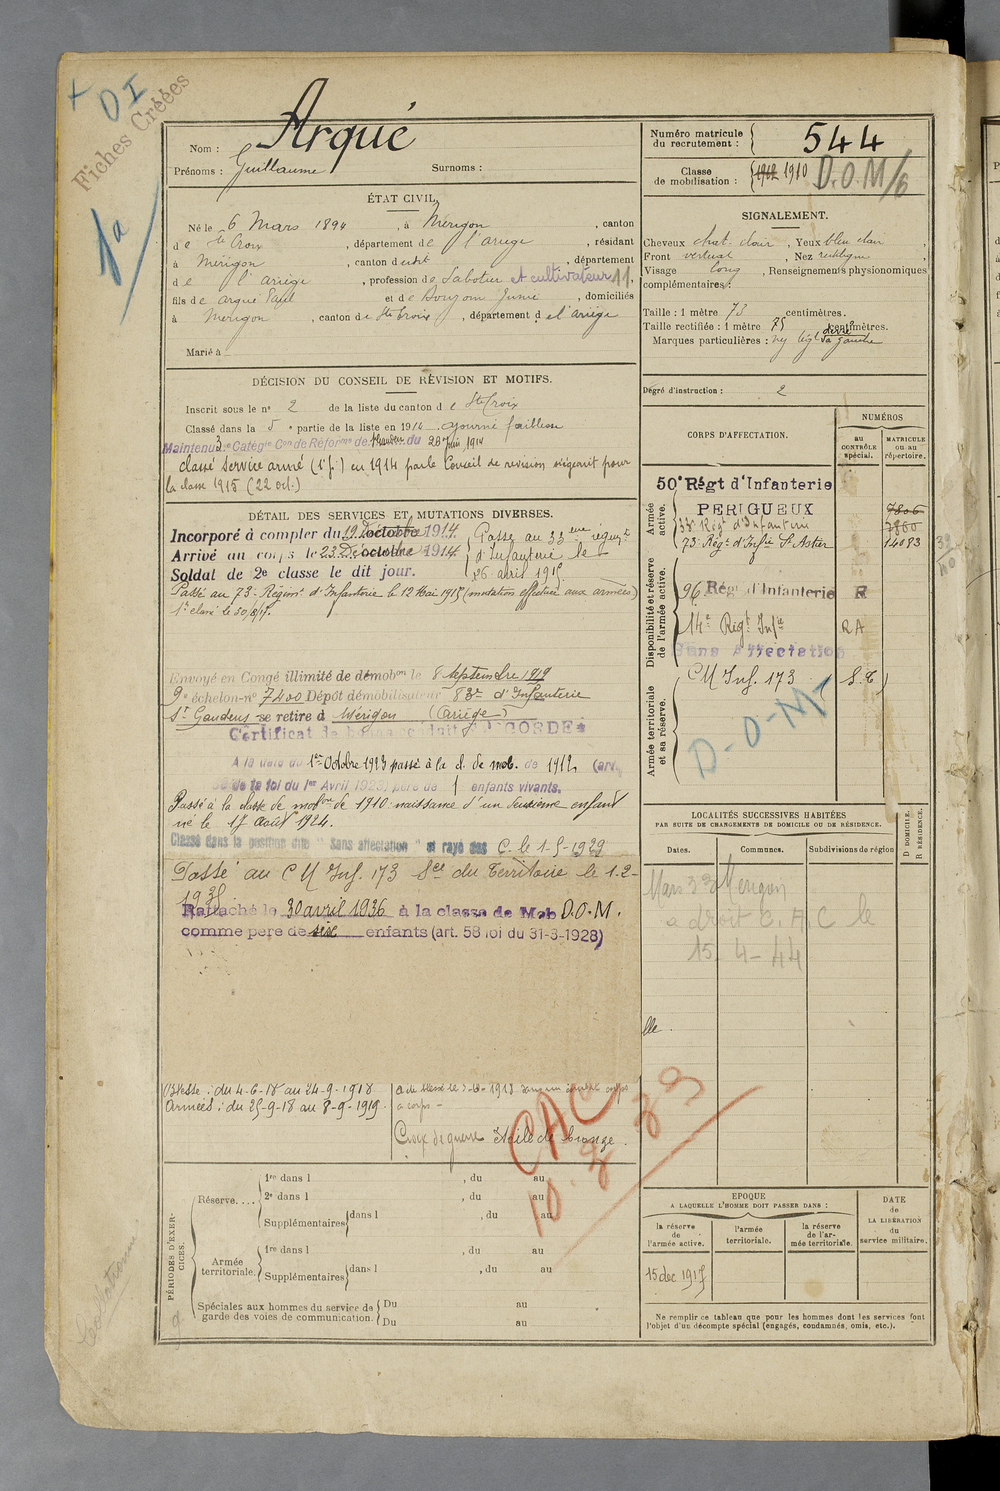 Fiches Créées
D I
1a
Nom : Arqué
Prénoms : Guillaume Surnoms :
Numéro matricule du recrutement : 544
Classe de mobilisation : 1912 1910 D.O.M/6
ÉTAT CIVIL.
Né le 6 Mars 1894, à Mérigon, canton
de Ste Croix, département de l'ariège, résidant
à Mérigon, canton dudit, département
de l'ariège, profession de Sabotier et cultivateur 11,
fils de arqué Paul et de Bouzom Junie, domiciliés
à Mérigon, canton de Ste Croix, département de l'ariège
Marié à
SIGNALEMENT.
Cheveux chat. clair, Yeux bleu clair,
Front vertical, Nez rectiligne,
Visage long, Renseignements physionomiques
complémentaires :
Taille : 1 mètre 73 centimètres.
Taille rectifiée : 1 mètre 75 centimètres.
Marques particulières :
Degré d'instruction : 2
DÉCISION DU CONSEIL DE RÉVISION ET MOTIFS.
Inscrit sous le n° 2 de la liste du canton de Ste Croix
Classé dans la 5e partie de la liste en 1914 ajourné faiblesse
Maintenu 3e Catégie Con de Réforme de du 26 Juin 1914
classé service armé (1e p.) en 1914 par le Conseil de revision siégeant pour
la classe 1915 (22 oct.)
DÉTAIL DES SERVICES ET MUTATIONS DIVERSES.
Incorporé à compter du 19 Décembre 1914.
Arrivé au corps le 23 Décembre 1914
Soldat de 2e classe le dit jour.
Passé au 33eme régimt
d'Infanterie le
26 avril 1915.
Passé au 73e Régimt d'Infanterie le 12 Mai 1915 (mutation effectuée aux armées)
1re classe le 30/8/17.
Envoyé en Congé illimité de démobon le 8 septembre 1919
9e échelon-n° 7400 Dépôt démobilisateur 83e d'Infanterie
St Gaudens se retire à Mérigon (Ariège)
Certificat de bonne conduite ACCORDÉ
A la date du 1er Octobre 1923 passé à la cl. de mob. de 1912 (art.
58 de la loi du 1er Avril 1923) père de 1 enfants vivants.
Passé à la classe de mobon de 1910 naissance d'un deuxième enfant
né le 17 Août 1924.
Classé dans la position dite "Sans affectation" et rayé des C. le 1-5-1929
Passé au C M Inf. 173 Sce du Territoire le 1-2-
1935
Rattaché le 30 avril 1936 à la classe de Mob D.O.M.
comme père de six enfants (art. 58 loi du 31-3-1928)
Blessé : du 4-6-18 au 24-9-1918
Armées : du 25-9-18 au 8-9-1919.
Croix de guerre Étoile de bronze.
CAC
10.3.39
CORPS D'AFFECTATION.
NUMÉROS
au CONTRÔLE spécial.
MATRICULE ou au répertoire.
Armée active.
50e Régt d'Infanterie
PERIGUEUX 7806
33e Régt d'Infanterie 7860
73e Régt d'Infie 14083
Disponibilité et réserve de l'armée active.
96 Régt d'Infanterie R
14e Régt Infie RA
Sans Affectation
Armée territoriale et sa réserve.
C M Inf. 173 S.T
D-O-M-
LOCALITÉS SUCCESSIVES HABITÉES
PAR SUITE DE CHANGEMENTS DE DOMICILE OU DE RÉSIDENCE.
D DOMICILE. R RÉSIDENCE.
Dates. Communes. Subdivisions de région
Mars 33 Merigon
a droit C.A.C le
15-4-44
PÉRIODES D'EXERCICES.
Réserve.... 1re dans l , du au
2e dans l , du au
Supplémentaires dans l , du au
Armée territoriale. 1re dans l , du au
Supplémentaires dans l , du au
Spéciales aux hommes du service de garde des voies de communication. Du au
Du au
EPOQUE
A LAQUELLE L'HOMME DOIT PASSER DANS :
la réserve de l'armée active.
l'armée territoriale.
la réserve de l'armée territoriale.
DATE de LA LIBÉRATION du service militaire.
15 dec 1917
Ne remplir ce tableau que pour les hommes dont les services font
l'objet d'un décompte spécial (engagés, condamnés, omis, etc.).